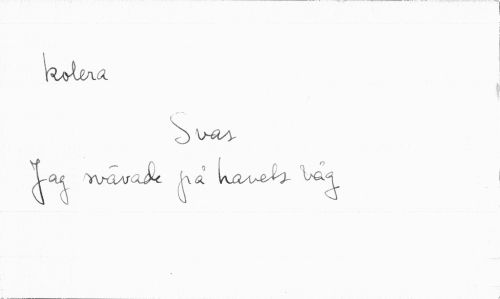 kolera
Svas
Jag svävade på havets våg